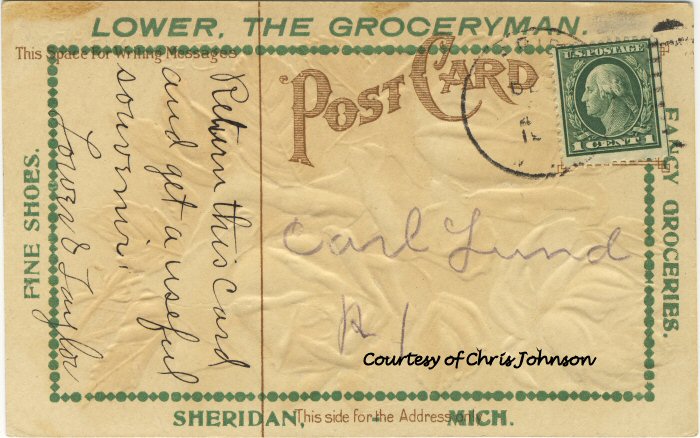 LOWER, THE GROCERYMAN.
This Space for Writing Messages
POST CARD
U.S. POSTAGE
1 CENT 1
FINE SHOES.
FANCY GROCERIES.
Return this Card
and get a useful
souvenir
Lower & Taylor
Carl Lund
R 1
Courtesy of Chris Johnson
SHERIDAN, - MICH.
This side for the Address only